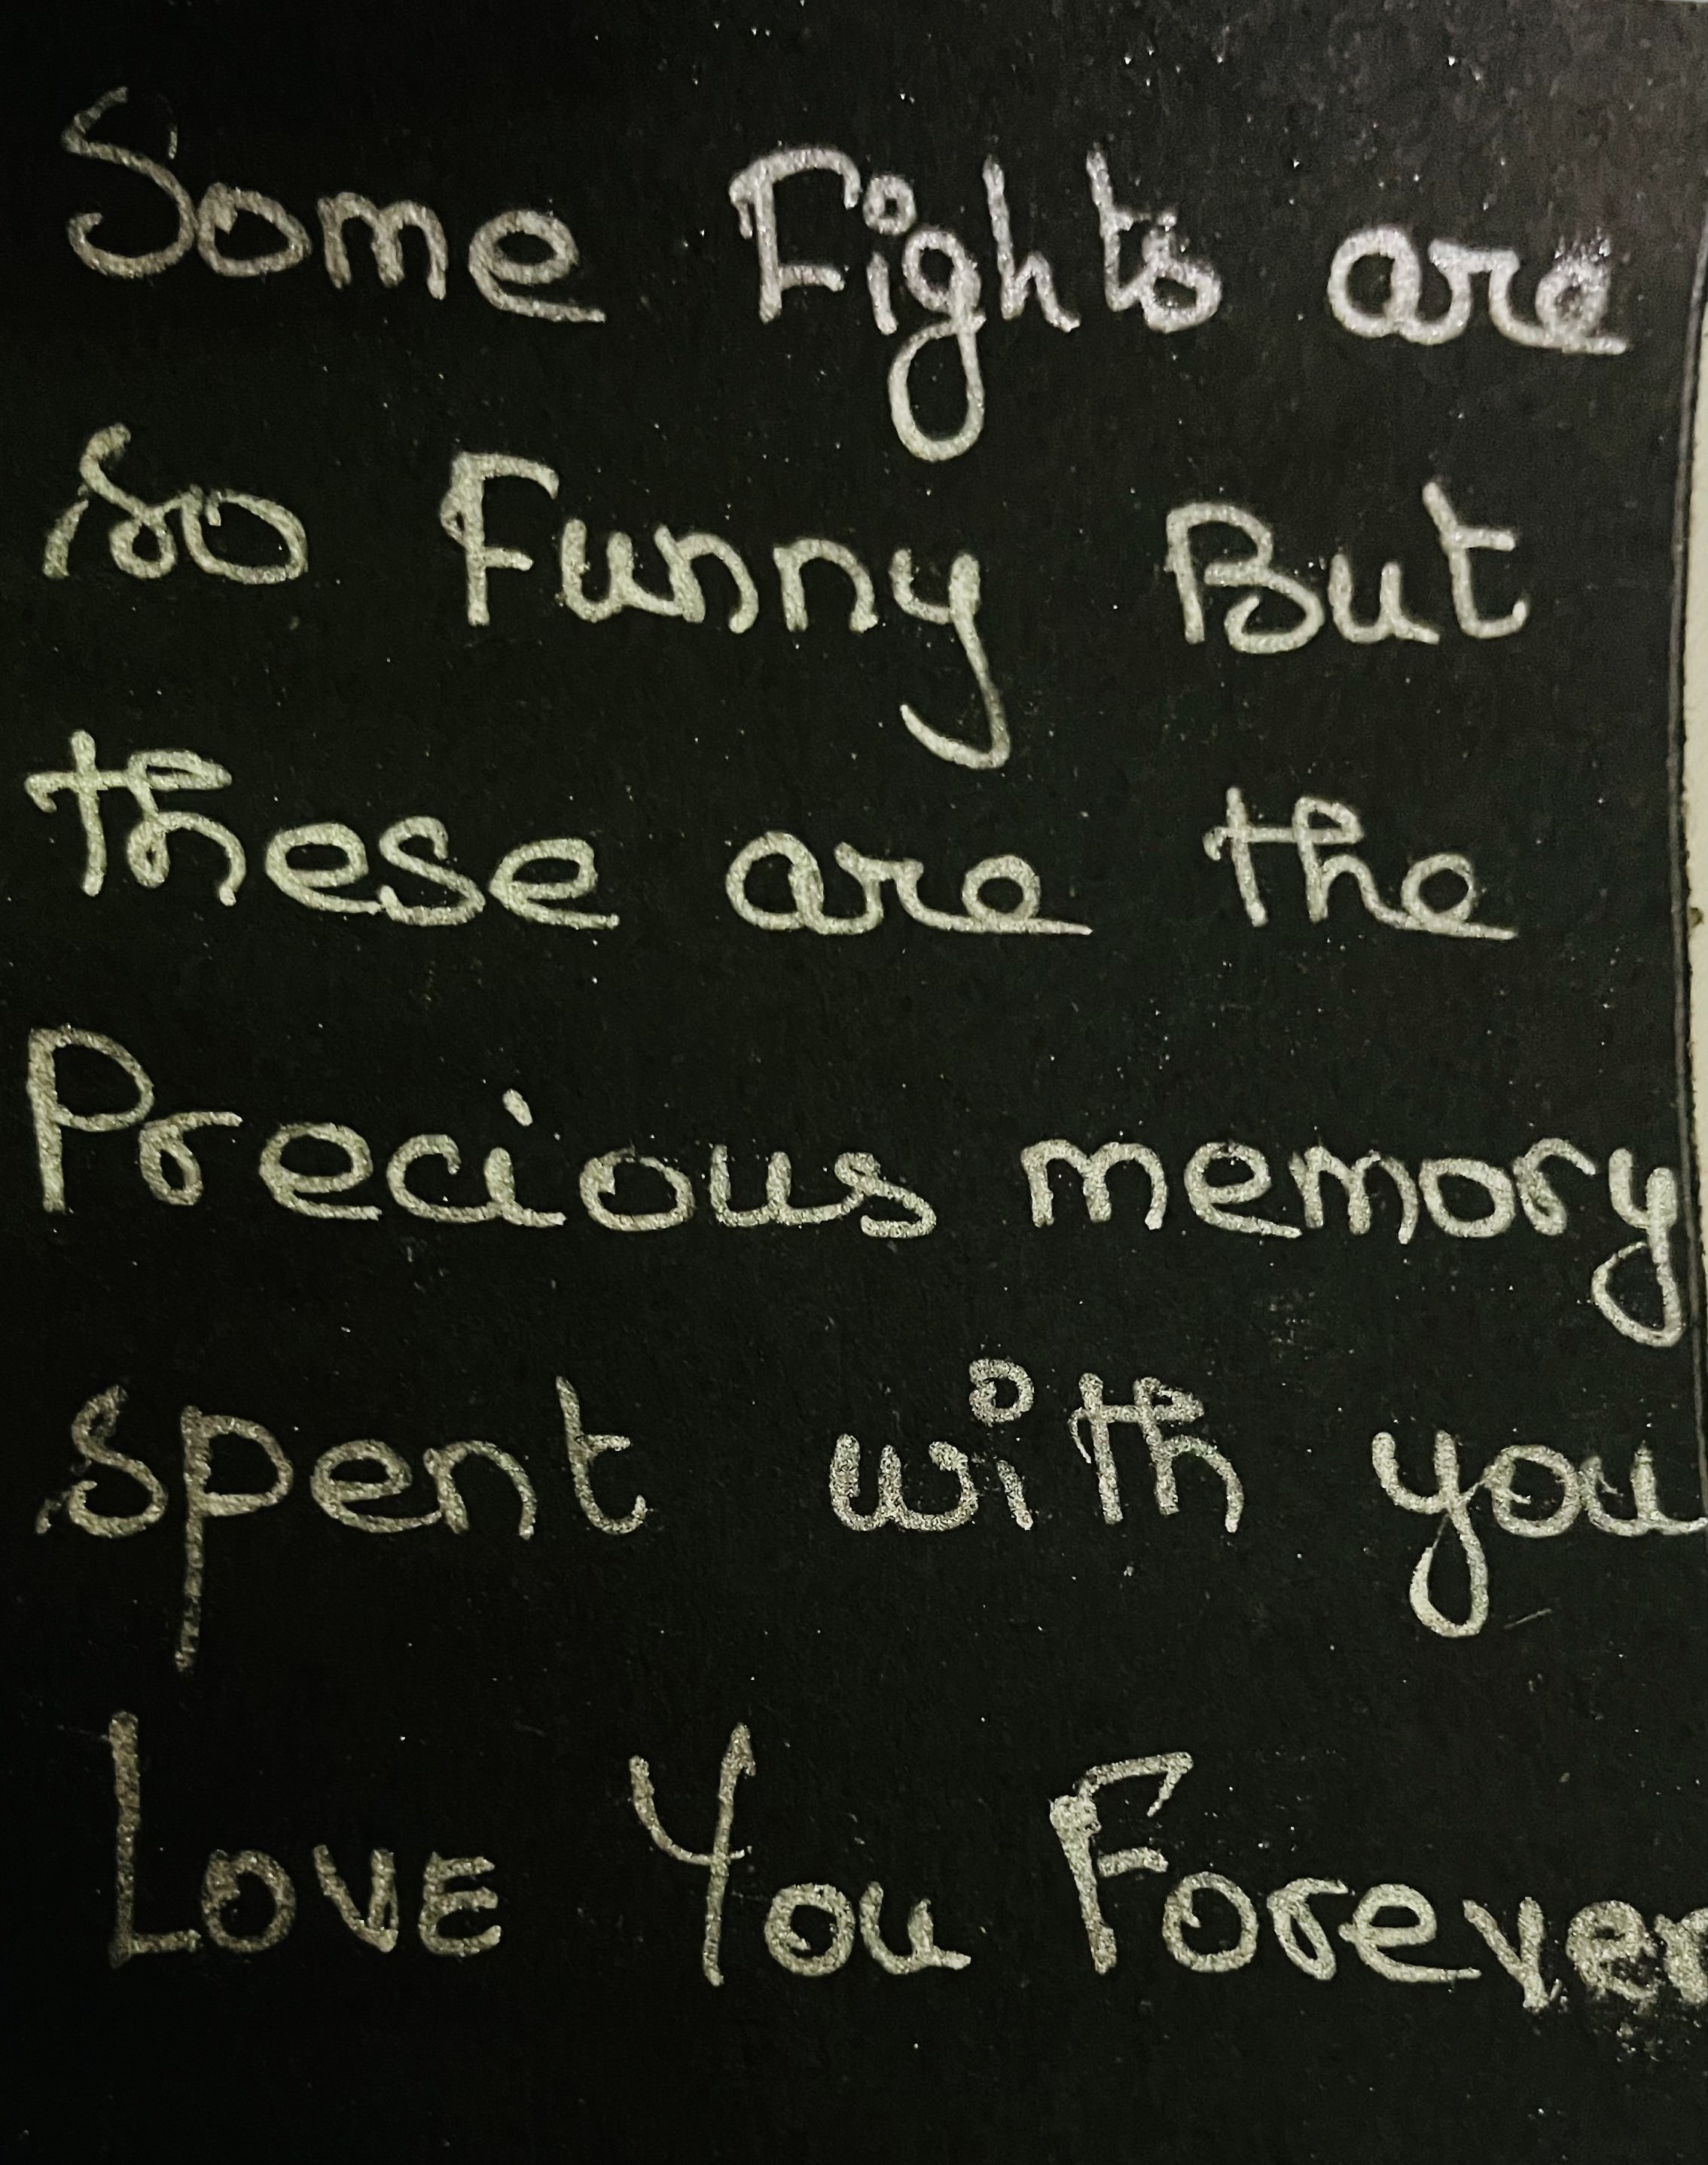 Some Fights are
so Funny But
these are the
Precious memory
spent with you
LOVE You Forever